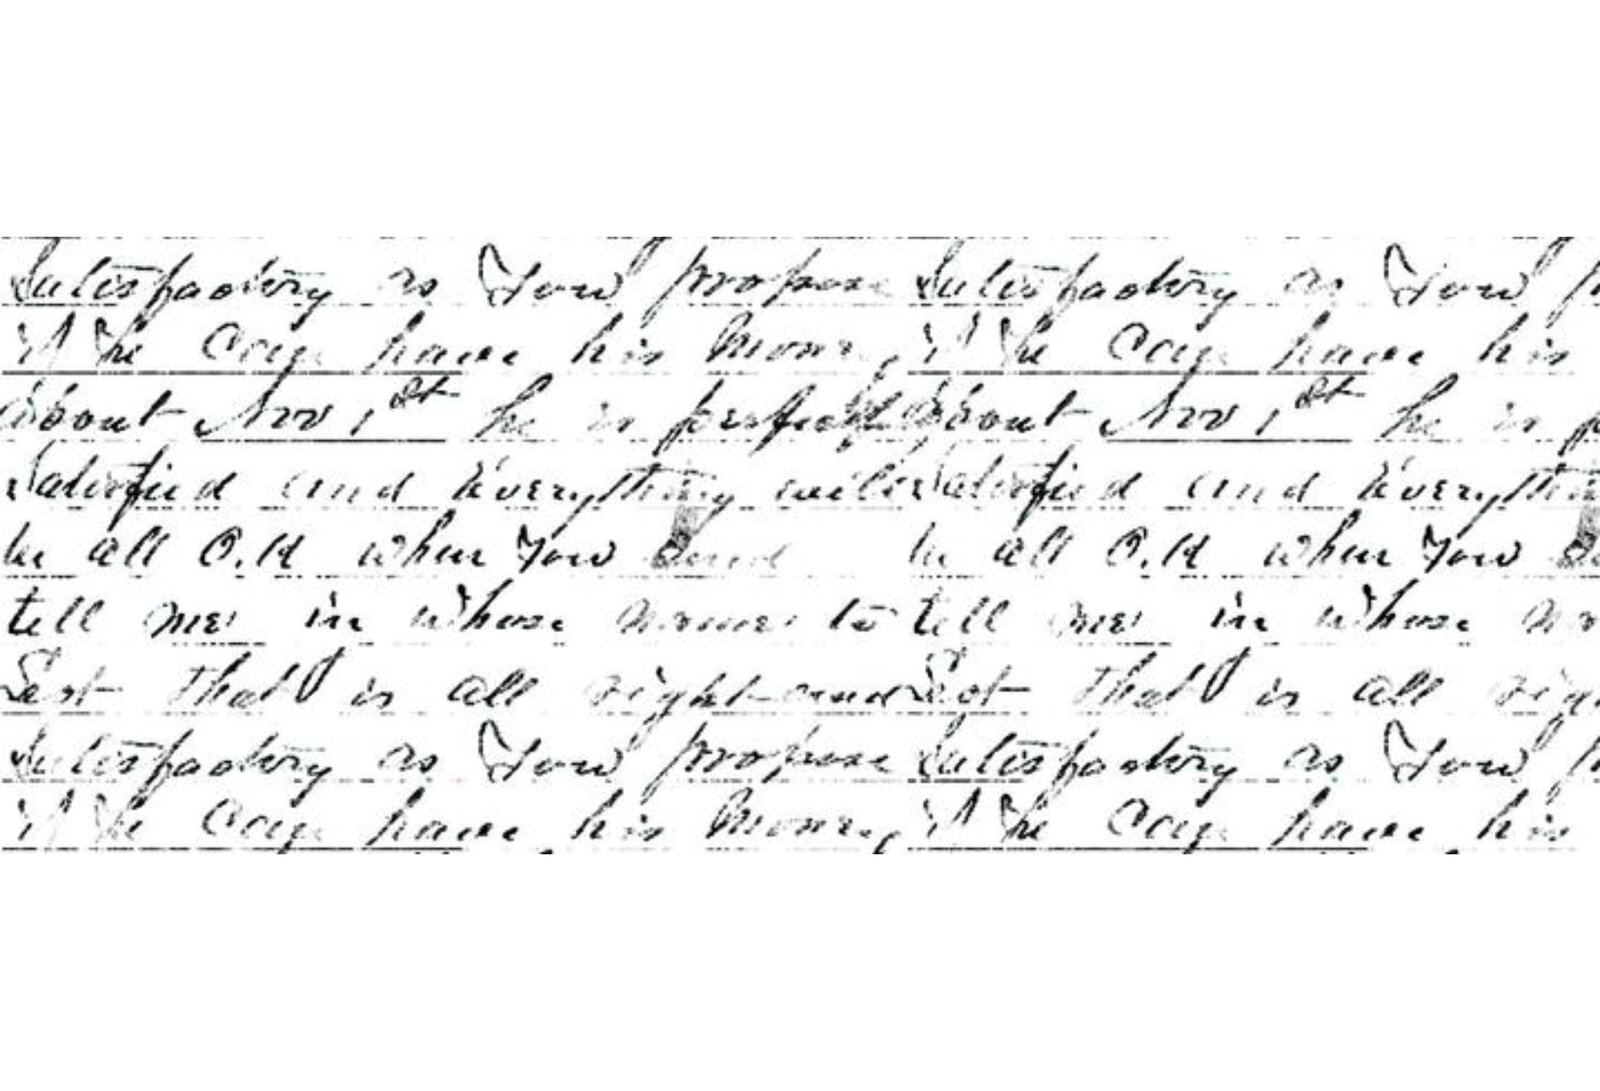 Satisfactory as You propose Satisfactory as You
if he Can have his Money if he Can have his
About Nov 1st he is perfectly About Nov 1st he is
Satisfied and Everything will Satisfied and Everything
be all O.K when You Send be all O.K when You
tell me in whose name to tell me in whose
that is all right and that is all
Satisfactory as You propose Satisfactory as You
if he Can have his Money if he Can have his